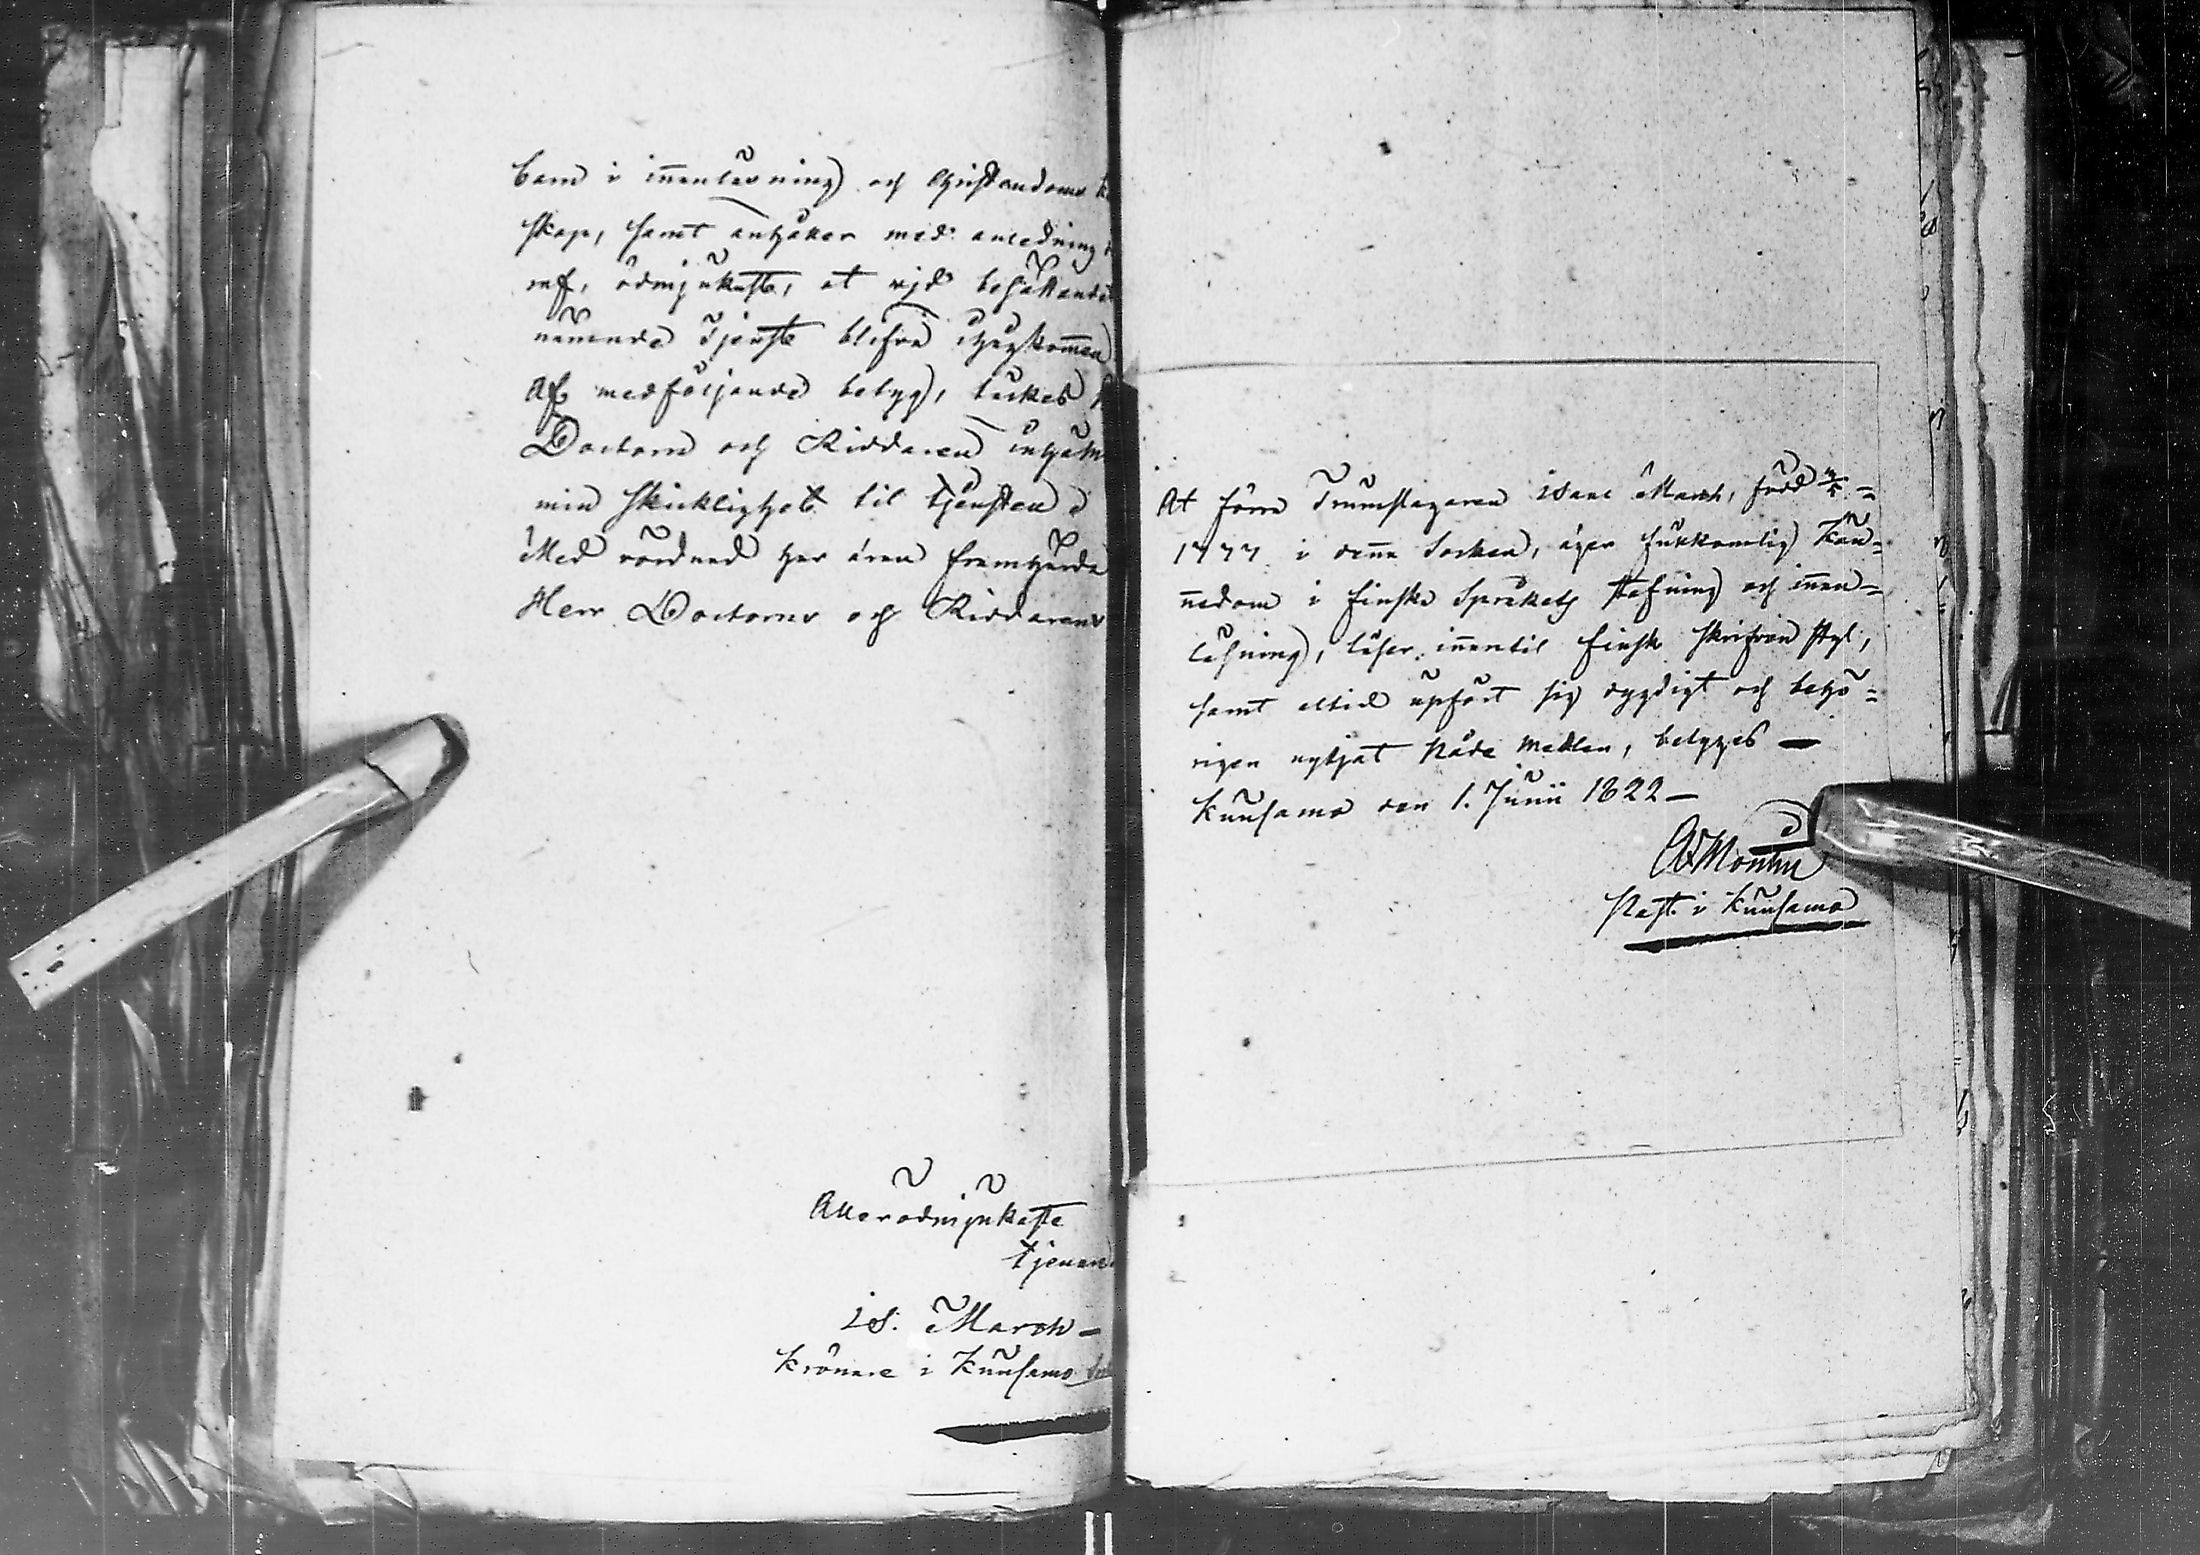 barn i innanläsning och Christendoms k
skap, samt anhåller med anledning
ödmjukast, at vid besättande
nämnde Tjenst blifva ihogkommen
Af medföljande betyg, täckes
Doctorn och Riddaren inhämta
min skicklighet til tjensten
Med vördnad har äran framhärda
Herr Doctorns och Riddarens
Allerödmjukaste
tjenare
Is. March
krönare i Kuusamo
At förre Trumslagaren Isac March, född
1777 i denna Socken, äger fullkomlig Kän=
nedom i Finska Språkets stafning och innan=
läsning, läser innantil finsk skrifven styl,
samt altid upfört sig dygdigt och behö=
rigen nyttjat Nåde medlen, betygas
Kuusamo den 1. Junii 1822 —
Past. i Kuusamo